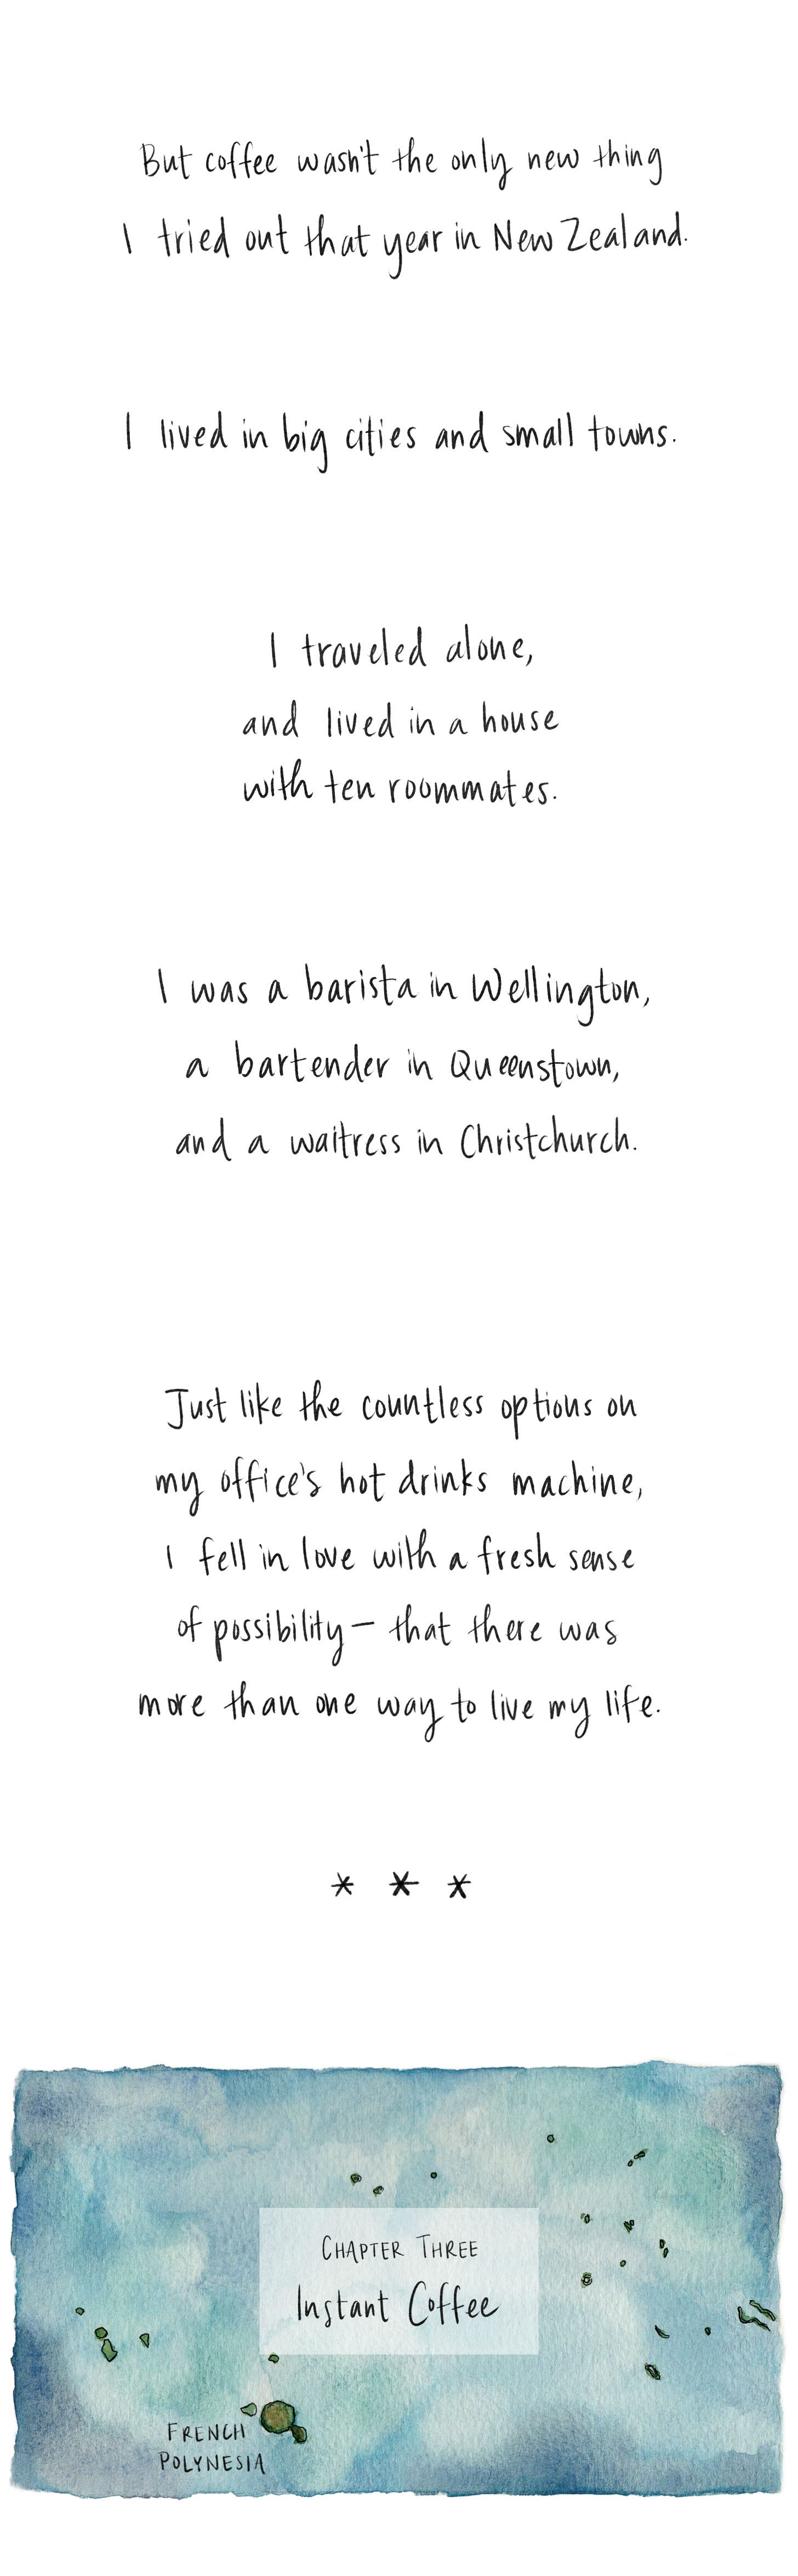 But coffee wasn't the only new thing
I tried out that year in New Zealand.
I lived in big cities and small towns.
I traveled alone,
and lived in a house
with ten roommates.
I was a barista in Wellington,
a bartender in Queenstown,
and a waitress in Christchurch.
Just like the countless options on
my office's hot drinks machine,
I fell in love with a fresh sense
of possibility — that there was
more than one way to live my life.
* * *
CHAPTER THREE
Instant Coffee
FRENCH
POLYNESIA